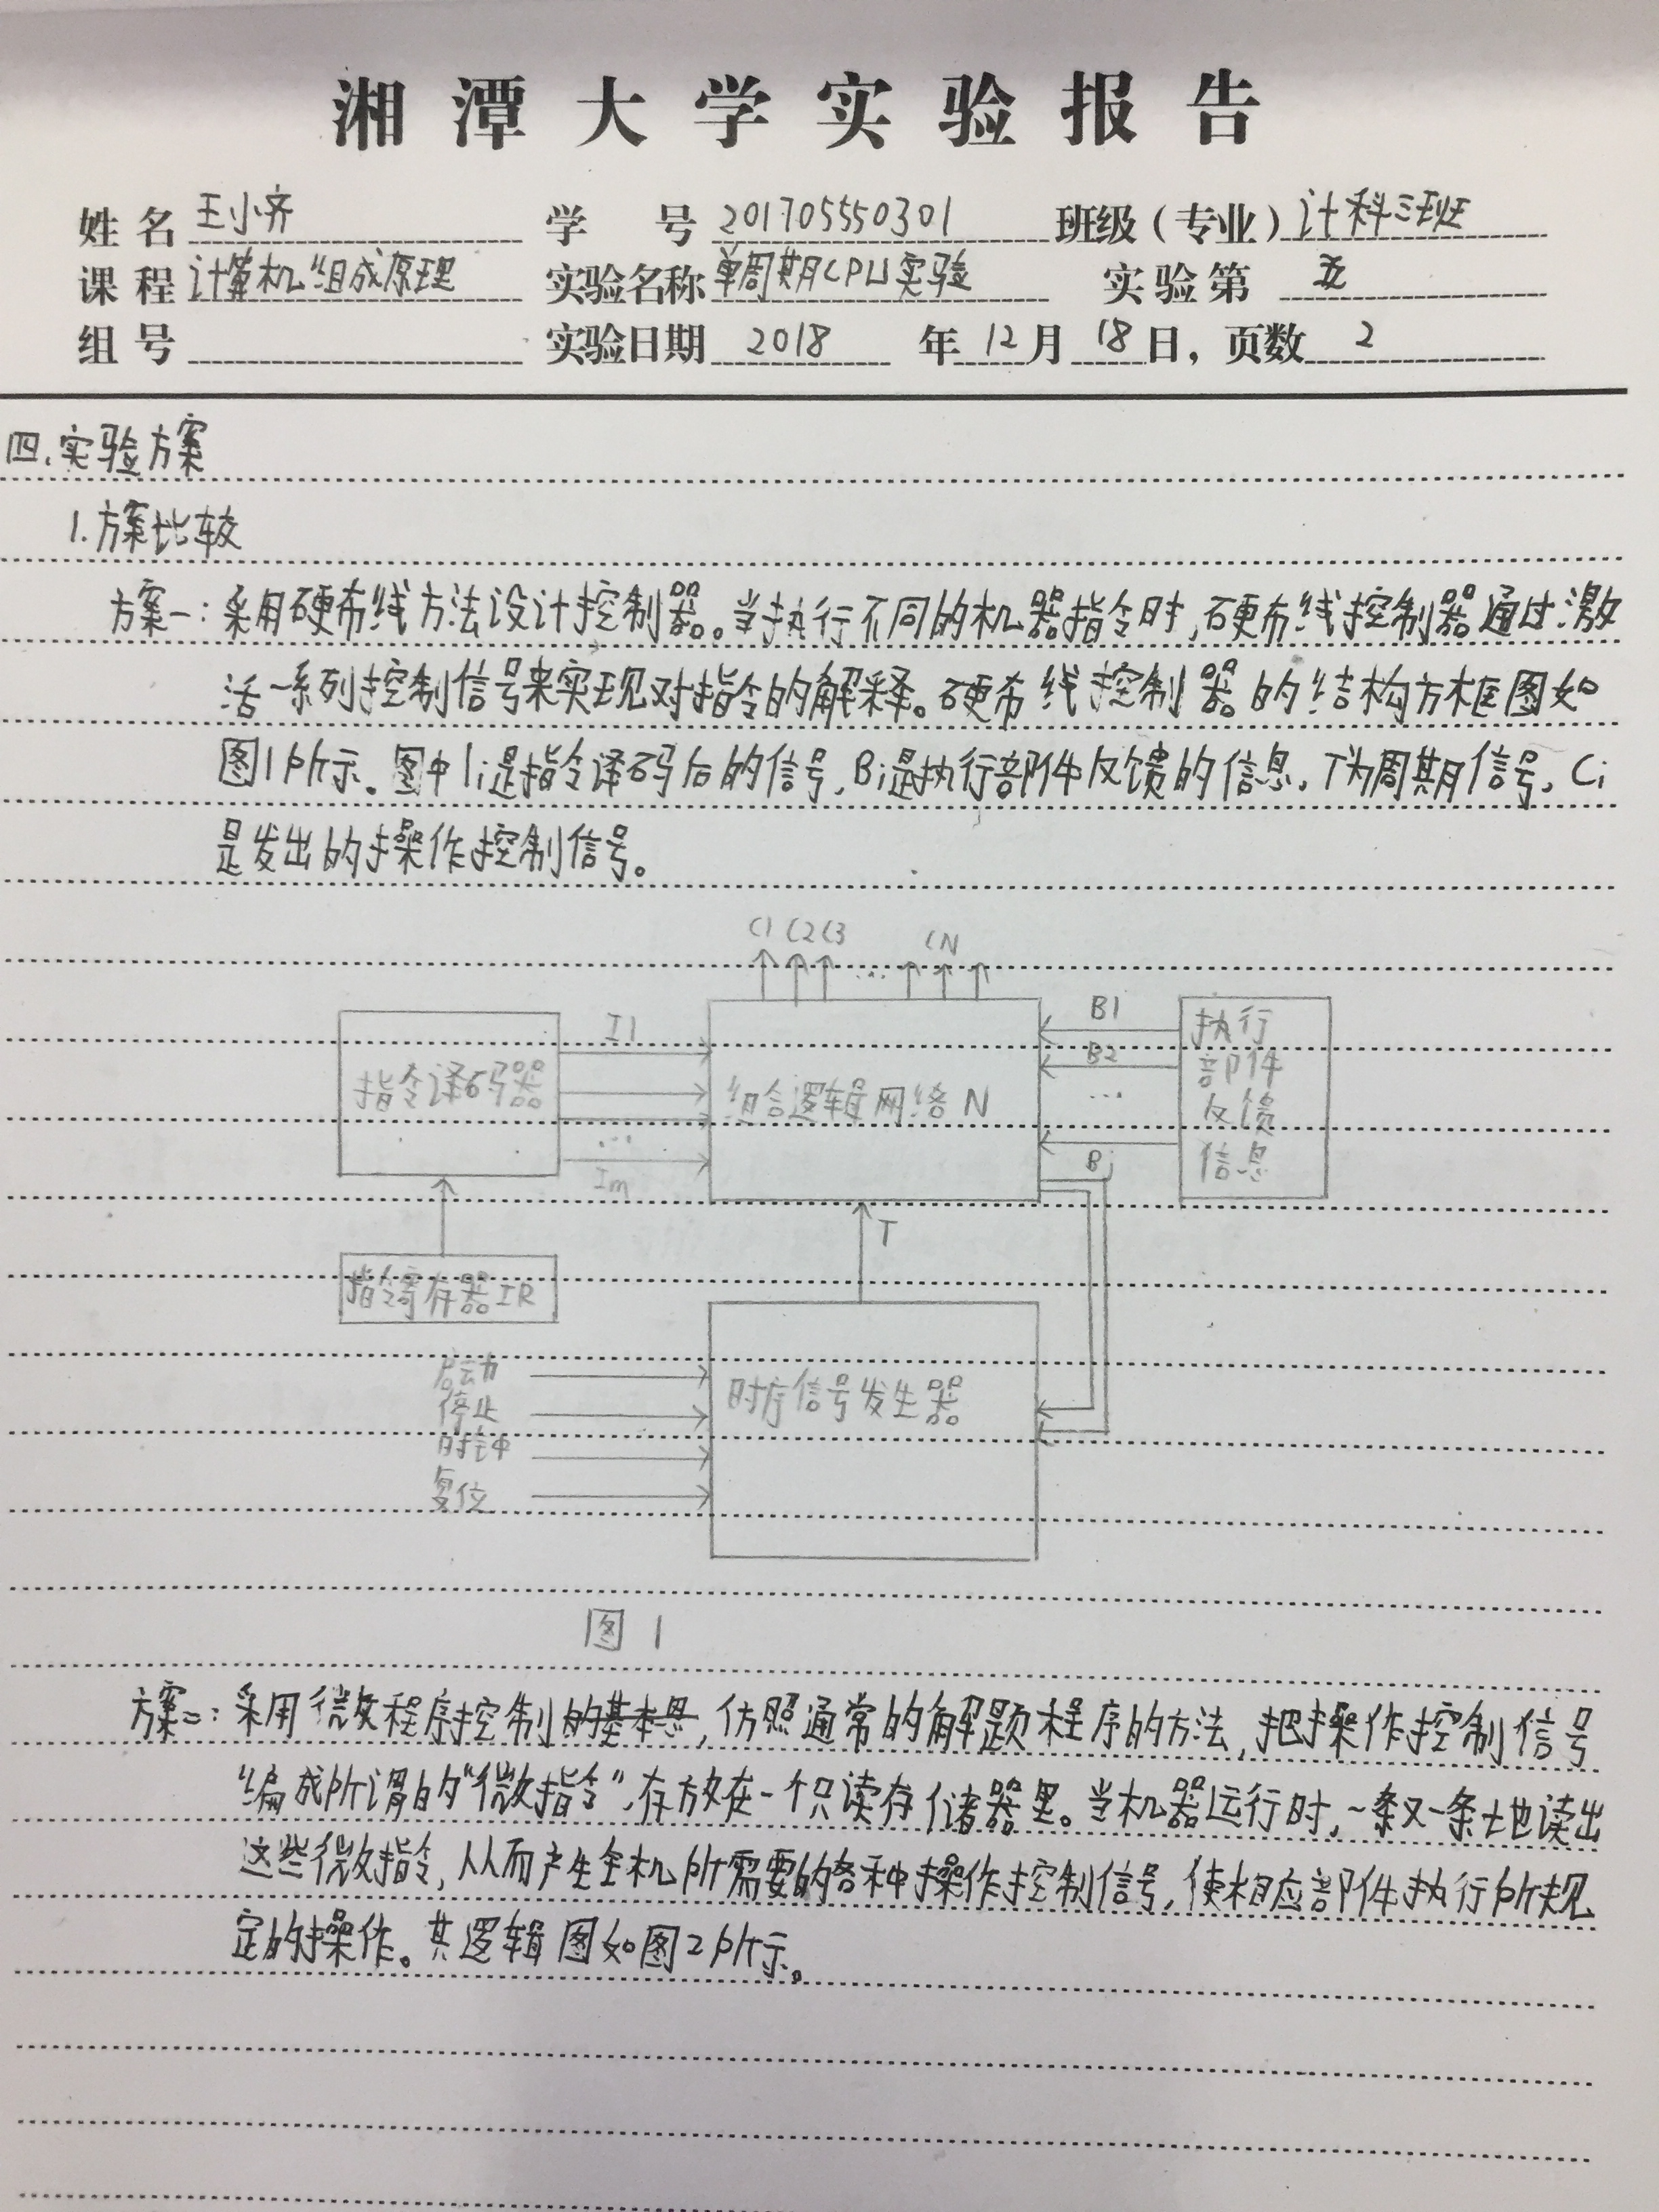 湘潭大学实验报告
姓名 王小齐 学号 201705550301 班级（专业）计科三班
课程 计算机组成原理 实验名称 单周期CPU实验 实验第 五
组号 实验日期 2018 年 12 月 18 日，页数 2
四.实验方案
1.方案比较
方案一：采用硬布线方法设计控制器。当执行不同的机器指令时，硬布线控制器通过激
活一系列控制信号来实现对指令的解释。硬布线控制器的结构方框图如
图1所示。图中Ii是指令译码后的信号，Bi是执行部件反馈的信息，T为周期信号，Ci
是发出的操作控制信号。
C1 C2 C3 … CN
指令译码器
I1
…
Im
组合逻辑网络N
B1
B2
…
Bj
执行
部件
反馈
信息
T
指令寄存器IR
启动
停止
时钟
复位
时序信号发生器
图1
方案二：采用微程序控制的基本思，仿照通常的解题程序的方法，把操作控制信号
编成所谓的“微指令”，存放在一个只读存储器里。当机器运行时，一条又一条地读出
这些微指令，从而产生全机所需要的各种操作控制信号，使相应部件执行所规
定的操作。其逻辑图如图2所示。